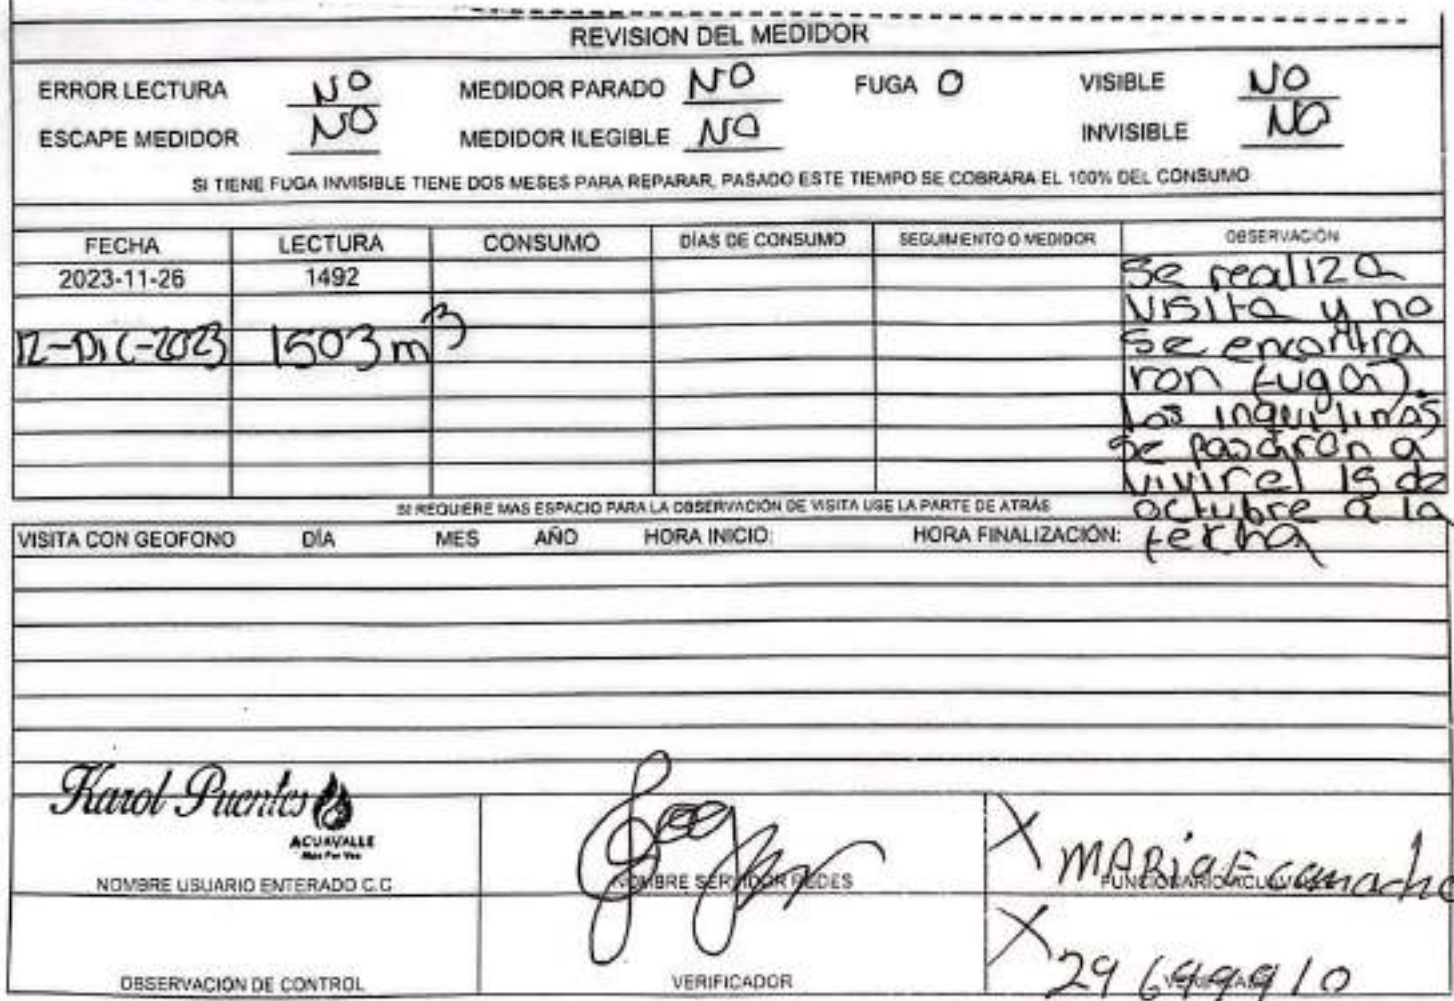 REVISION DEL MEDIDOR
ERROR LECTURA NO MEDIDOR PARADO NO FUGA O VISIBLE NO
ESCAPE MEDIDOR NO MEDIDOR ILEGIBLE NO INVISIBLE NO
SI TIENE FUGA INVISIBLE TIENE DOS MESES PARA REPARAR, PASADO ESTE TIEMPO SE COBRARA EL 100% DEL CONSUMO
FECHA LECTURA CONSUMO DÍAS DE CONSUMO SEGUIMIENTO O MEDIDOR OBSERVACIÓN
2023-11-26 1492 Se realiza
visita y no
12-Dic-2023 1503 m³ se encontra
ron fugas).
los inquilinos
se pasaron a
vivir el 15 de
octubre a la
fecha
SI REQUIERE MAS ESPACIO PARA LA OBSERVACIÓN DE VISITA USE LA PARTE DE ATRÁS
VISITA CON GEOFONO DÍA MES AÑO HORA INICIO: HORA FINALIZACIÓN:
Karol Puentes
ACUAVALLE
Más Por Vos
X MARia E camacho
NOMBRE USUARIO ENTERADO C.C NOMBRE SERVIDOR REDES FUNCIONARIO
X
OBSERVACIÓN DE CONTROL VERIFICADOR